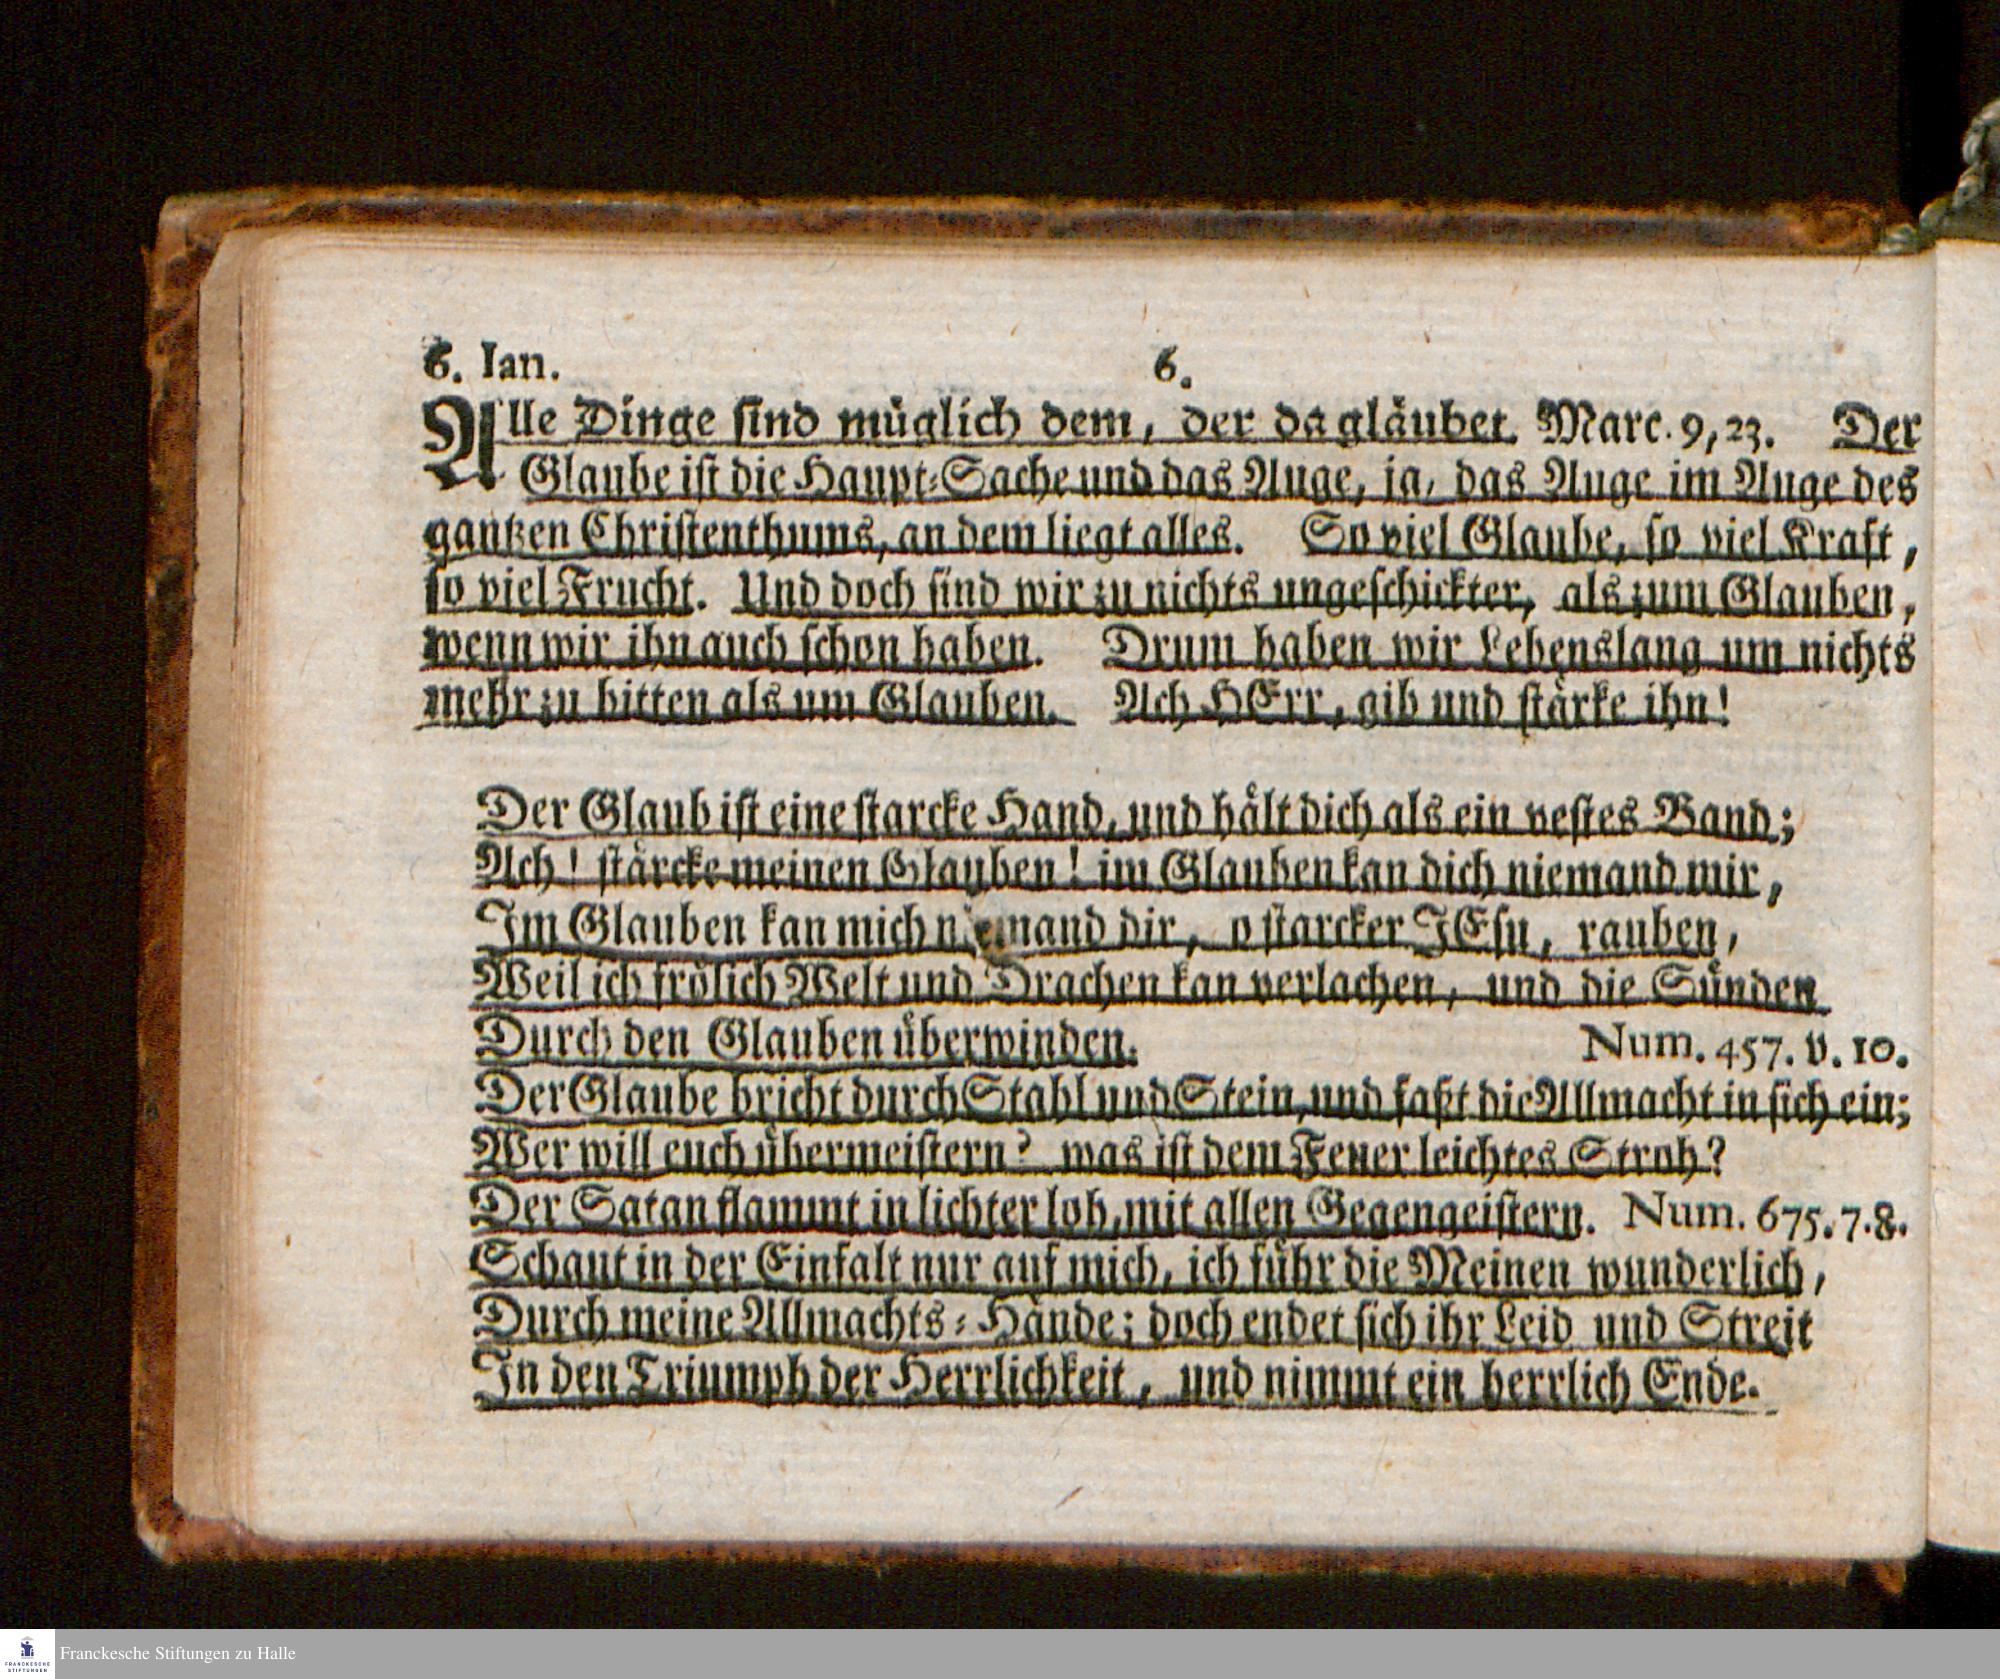 6. Ian. 6.
Alle Dinge sind müglich dem, der da gläubet. Marc. 9, 23. Der
Glaube ist die Haupt-Sache und das Auge, ja, das Auge im Auge des
gantzen Christenthums, an dem liegt alles. So viel Glaube, so viel Kraft,
so viel Frucht. Und doch sind wir zu nichts ungeschickter, als zum Glauben,
wenn wir ihn auch schon haben. Drum haben wir Lebenslang um nichts
mehr zu bitten als um Glauben. Ach HErr, gib und stärke ihn!
Der Glaub ist eine starcke Hand, und hält dich als ein vestes Band;
Ach! stärcke meinen Glauben! im Glauben kan dich niemand mir,
Im Glauben kan mich niemand dir, o starcker JEsu, rauben,
Weil ich frölich Welt und Drachen kan verlachen, und die Sünden
Durch den Glauben überwinden. Num. 457. v. 10.
Der Glaube bricht durch Stahl und Stein, und faßt die Allmacht in sich ein;
Wer will euch übermeistern? was ist dem Feuer leichtes Stroh?
Der Satan flammt in lichter loh, mit allen Gegengeistern. Num. 675. 7. 8.
Schaut in der Einfalt nur auf mich, ich führ die Meinen wunderlich,
Durch meine Allmachts-Hände; doch endet sich ihr Leid und Streit
In den Triumph der Herrlichkeit, und nimmt ein herrlich Ende.
FRANCKESCHE
STIFTUNGEN
Franckesche Stiftungen zu Halle